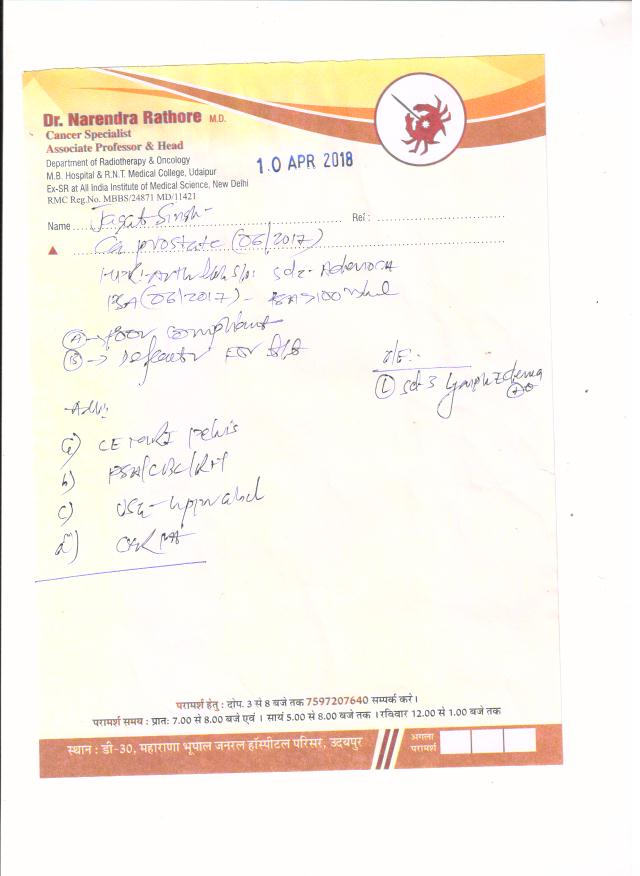 Dr. Narendra Rathore M.D.
Cancer Specialist
Associate Professor & Head
Department of Radiotherapy & Oncology
M.B. Hospital & R.N.T. Medical College, Udaipur
Ex-SR at All India Institute of Medical Science, New Delhi
RMC Reg.No. MBBS/24871 MD/11421
10 APR 2018
Name Jagat Singh Ref :
Ca prostate (06/2017)
PSA (06/2017) -
(A) → Poor Compliant
(B) → Defaulter For
O/E:-
(L) Lymphedema
Adv:
a) CE MRI Pelvis
b) PSA/CBC/RFT
c) USG - upp abd
d) CXR PA
परामर्श हेतु : दोप. 3 से 8 बजे तक 7597207640 सम्पर्क करे।
परामर्श समय : प्रातः 7.00 से 8.00 बजे एवं । सायं 5.00 से 8.00 बजे तक ।रविवार 12.00 से 1.00 बजे तक
स्थान : डी-30, महाराणा भूपाल जनरल हॉस्पीटल परिसर, उदयपुर
अगला
परामर्श